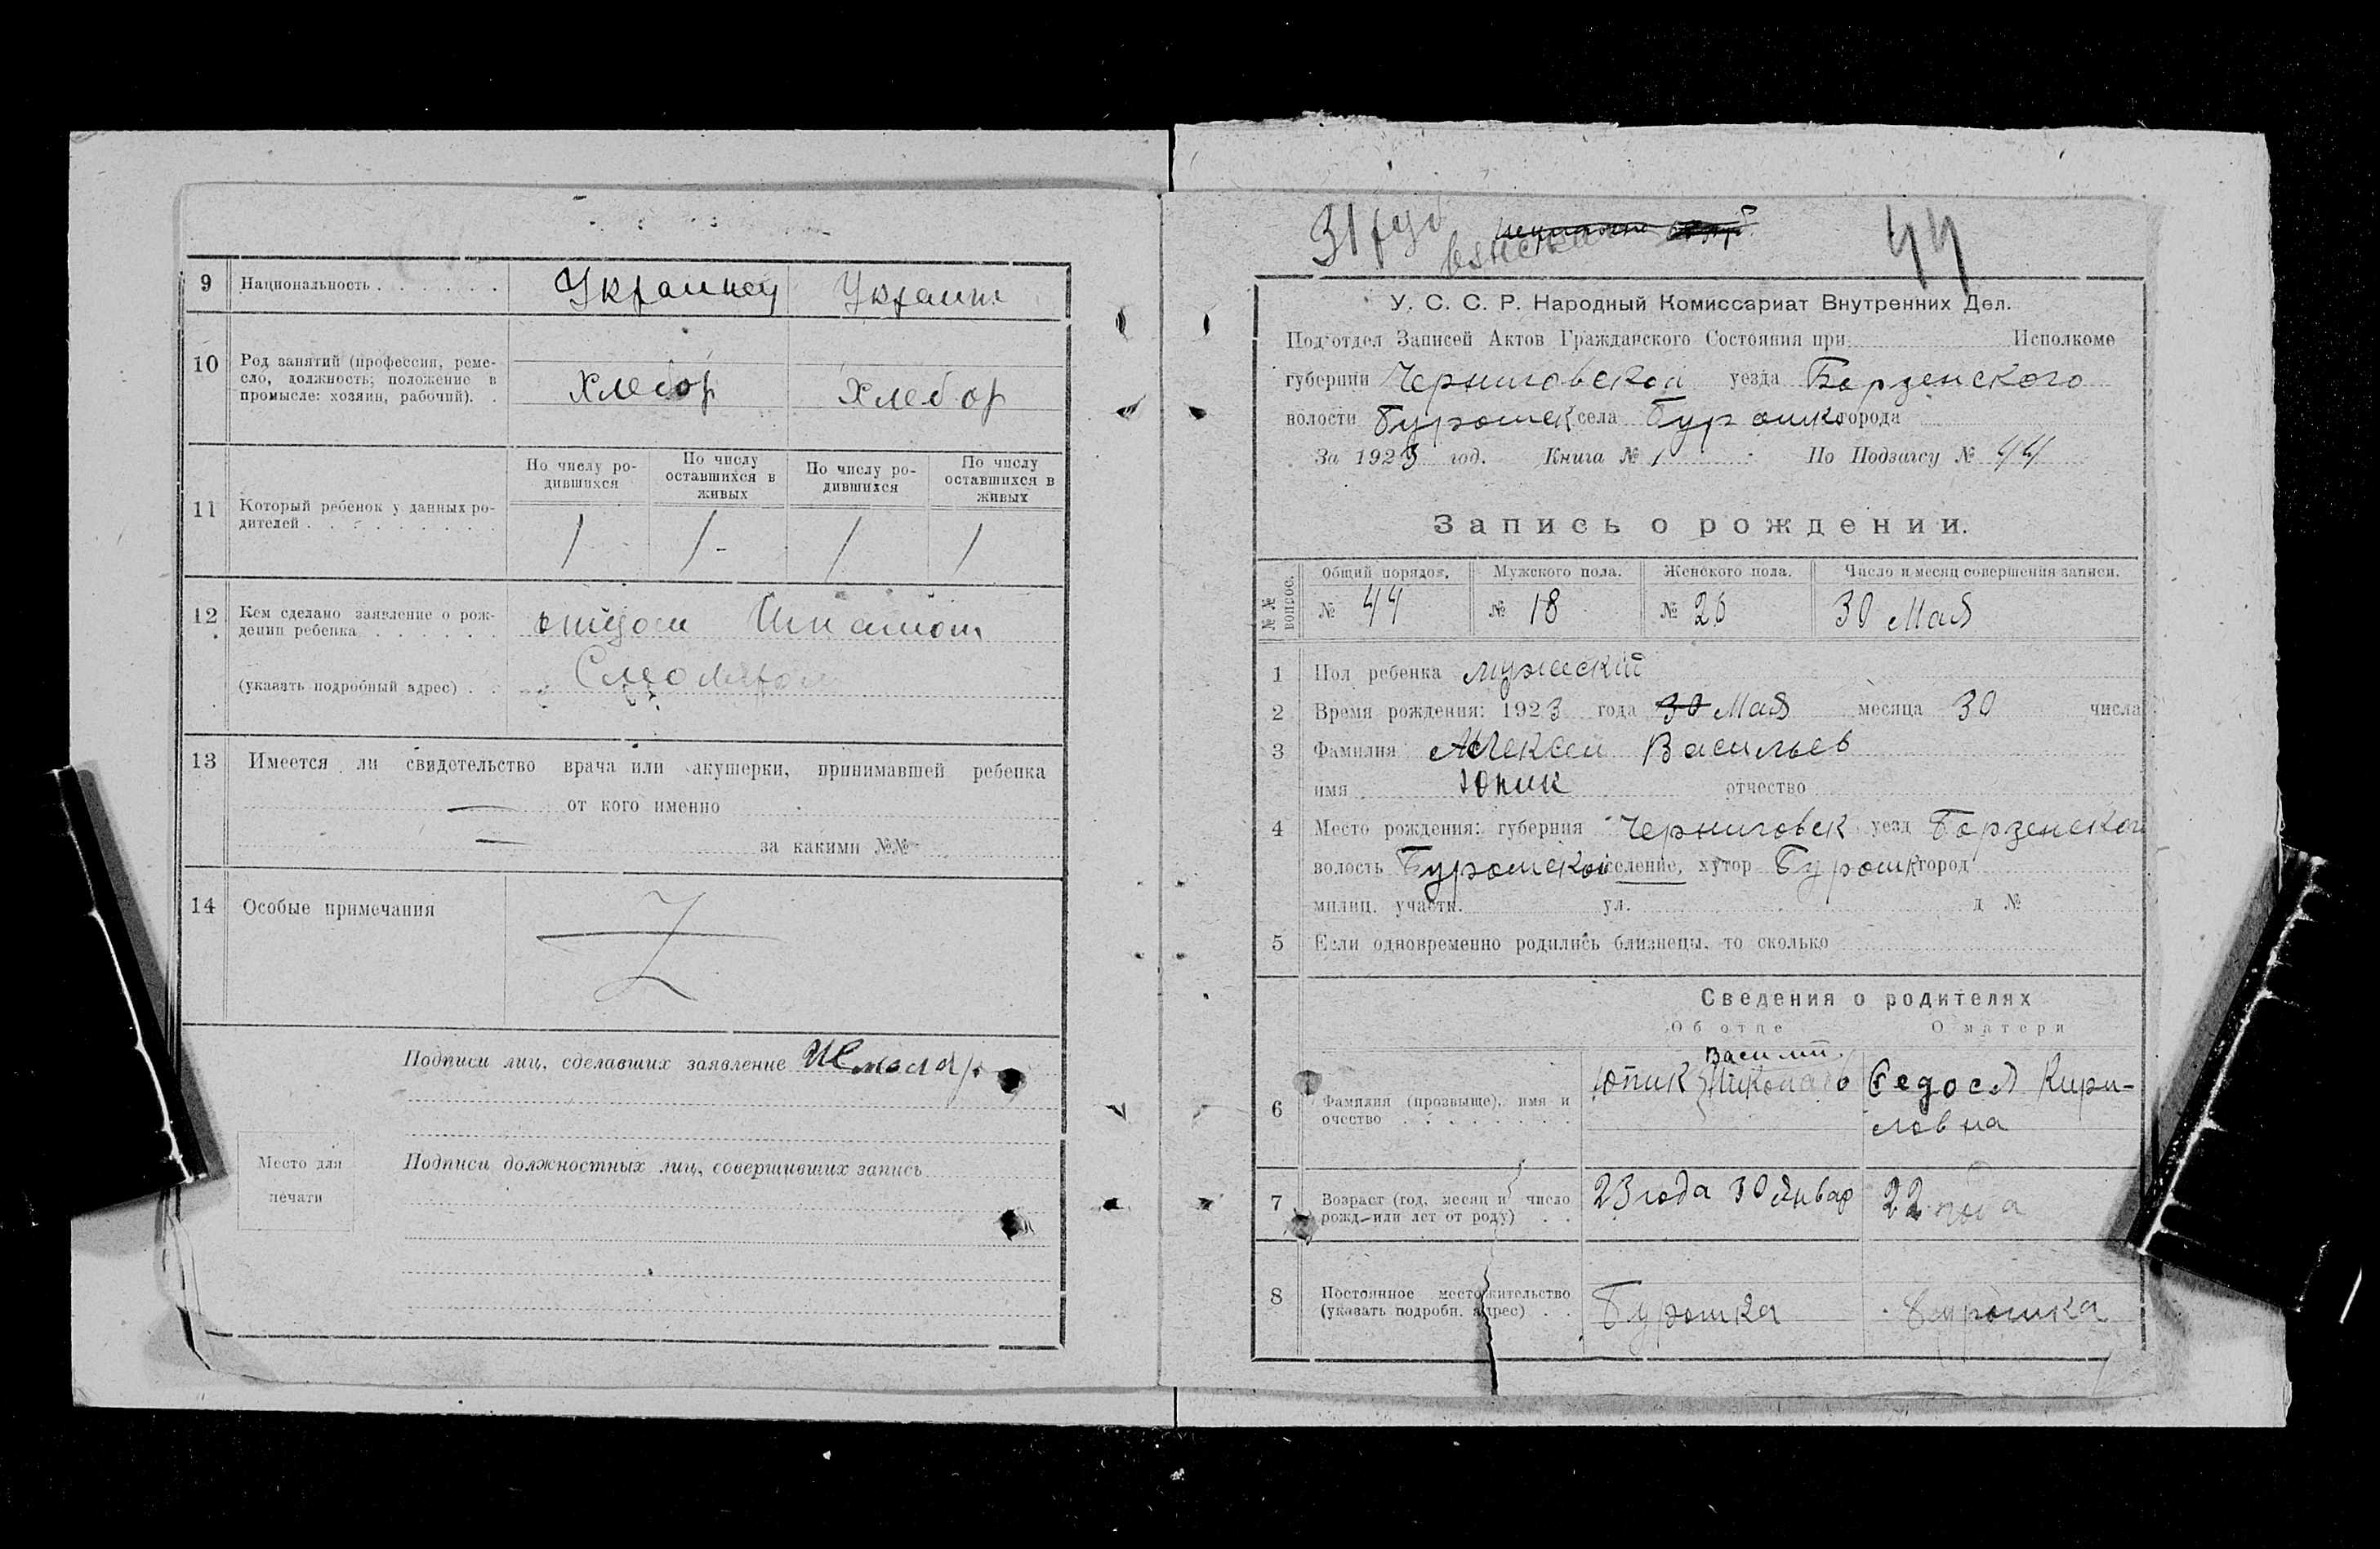 9 Национальность Украинец Украин
10 Род занятий (профессия, реме-
сло, должность; положение в
промысле: хозяин, рабочий).
Хлебор Хлебор
По числу ро-
дившихся
По числу
оставшихся в
живых
По числу ро-
дившихся
По числу
оставшихся в
живых
11 Который ребенок у данных ро-
дителей
1 1- 1 1
12 Кем сделано заявление о рож-
дении ребенка
отцом
(указать подробный адрес)
13 Имеется ли свидетельство врача или акушерки, принимавшей ребенка
— от кого именно
— за какими №№
14 Особые примечания Z
Подписи лиц, сделавших заявление
Место для
печати
Подписи должностных лиц, совершивших запись
44
У. С. С. Р. Народный Комиссариат Внутренних Дел.
Подотдел Записей Актов Гражданского Состояния при Исполкоме
губернии Черниговской уезда Борзенского
волости Буромск села Буромк города
За 1923 год. Книга № 1 По Подзагсу № 44
Запись о рождении.
№№ вопрос.
Общий порядок. Мужского пола. Женского пола. Число и месяц совершения записи.
№ 44 № 18 № 26 30 Мая
1 Пол ребенка мужеский
2 Время рождения: 1923 года 30 Мая месяца 30 числа
3 Фамилия Алексей Васильев
имя Юпик отчество
4 Место рождения: губерния Черниговск уезд Борзенской
волость Буромской селение, хутор Буромк город
милиц. участк. ул. д №
5 Если одновременно родились близнецы, то сколько
Сведения о родителях
Об отце О матери
6 Фамилия (прозвище), имя и
очество
Васили
Юпик Николаев
Федося Кири-
ловна
7 Возраст (год, месяц и число
рожд. или лет от роду)
23 года 30 Январ 22 года
8 Постоянное местожительство
(указать подробн. адрес)
Буромка Буромка